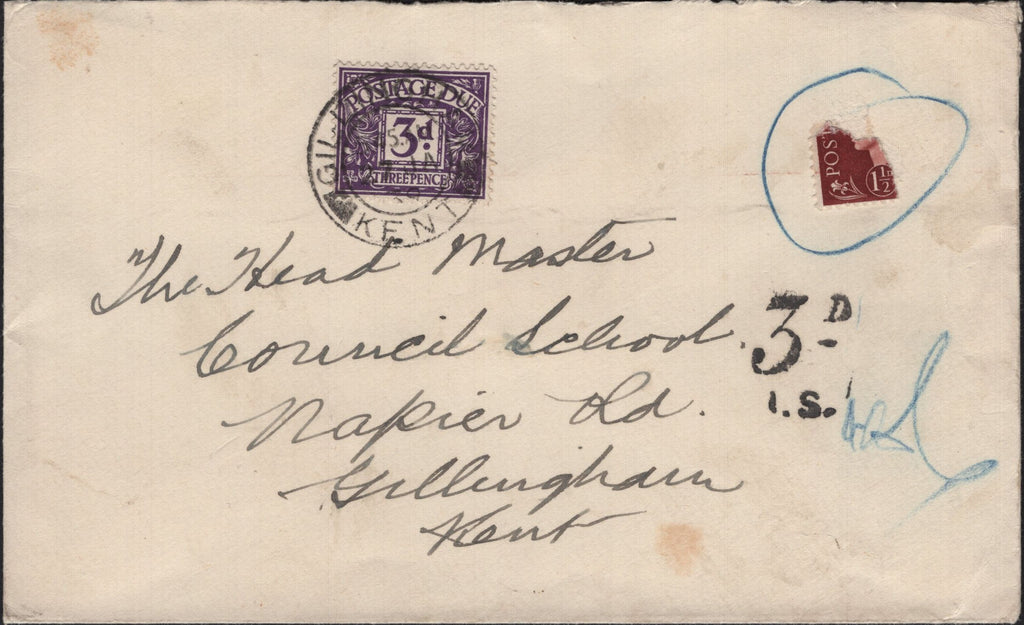 POSTAGE DUE
3d
THREEPENCE
KENT
POST
1½
The Head Master
Council School.
Napier Rd.
Gillingham
Kent
3D
I.S.